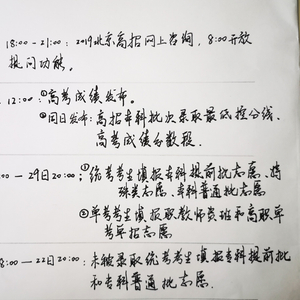 18:00—21:00:2019北京高招网上咨询,8:00开放
提问功能。
12:00:①高考成绩发布。
②同日发布:高招本科批次录取最低控分线、
高考成绩分数段。
:00—29日20:00:①统考考生填报本科提前批志愿、特
殊类志愿、本科普通批志愿
②单考考生填报职教师资班和高职单
考单招志愿
8:00—22日20:00:未被录取统考考生填报专科提前批
和专科普通批志愿.